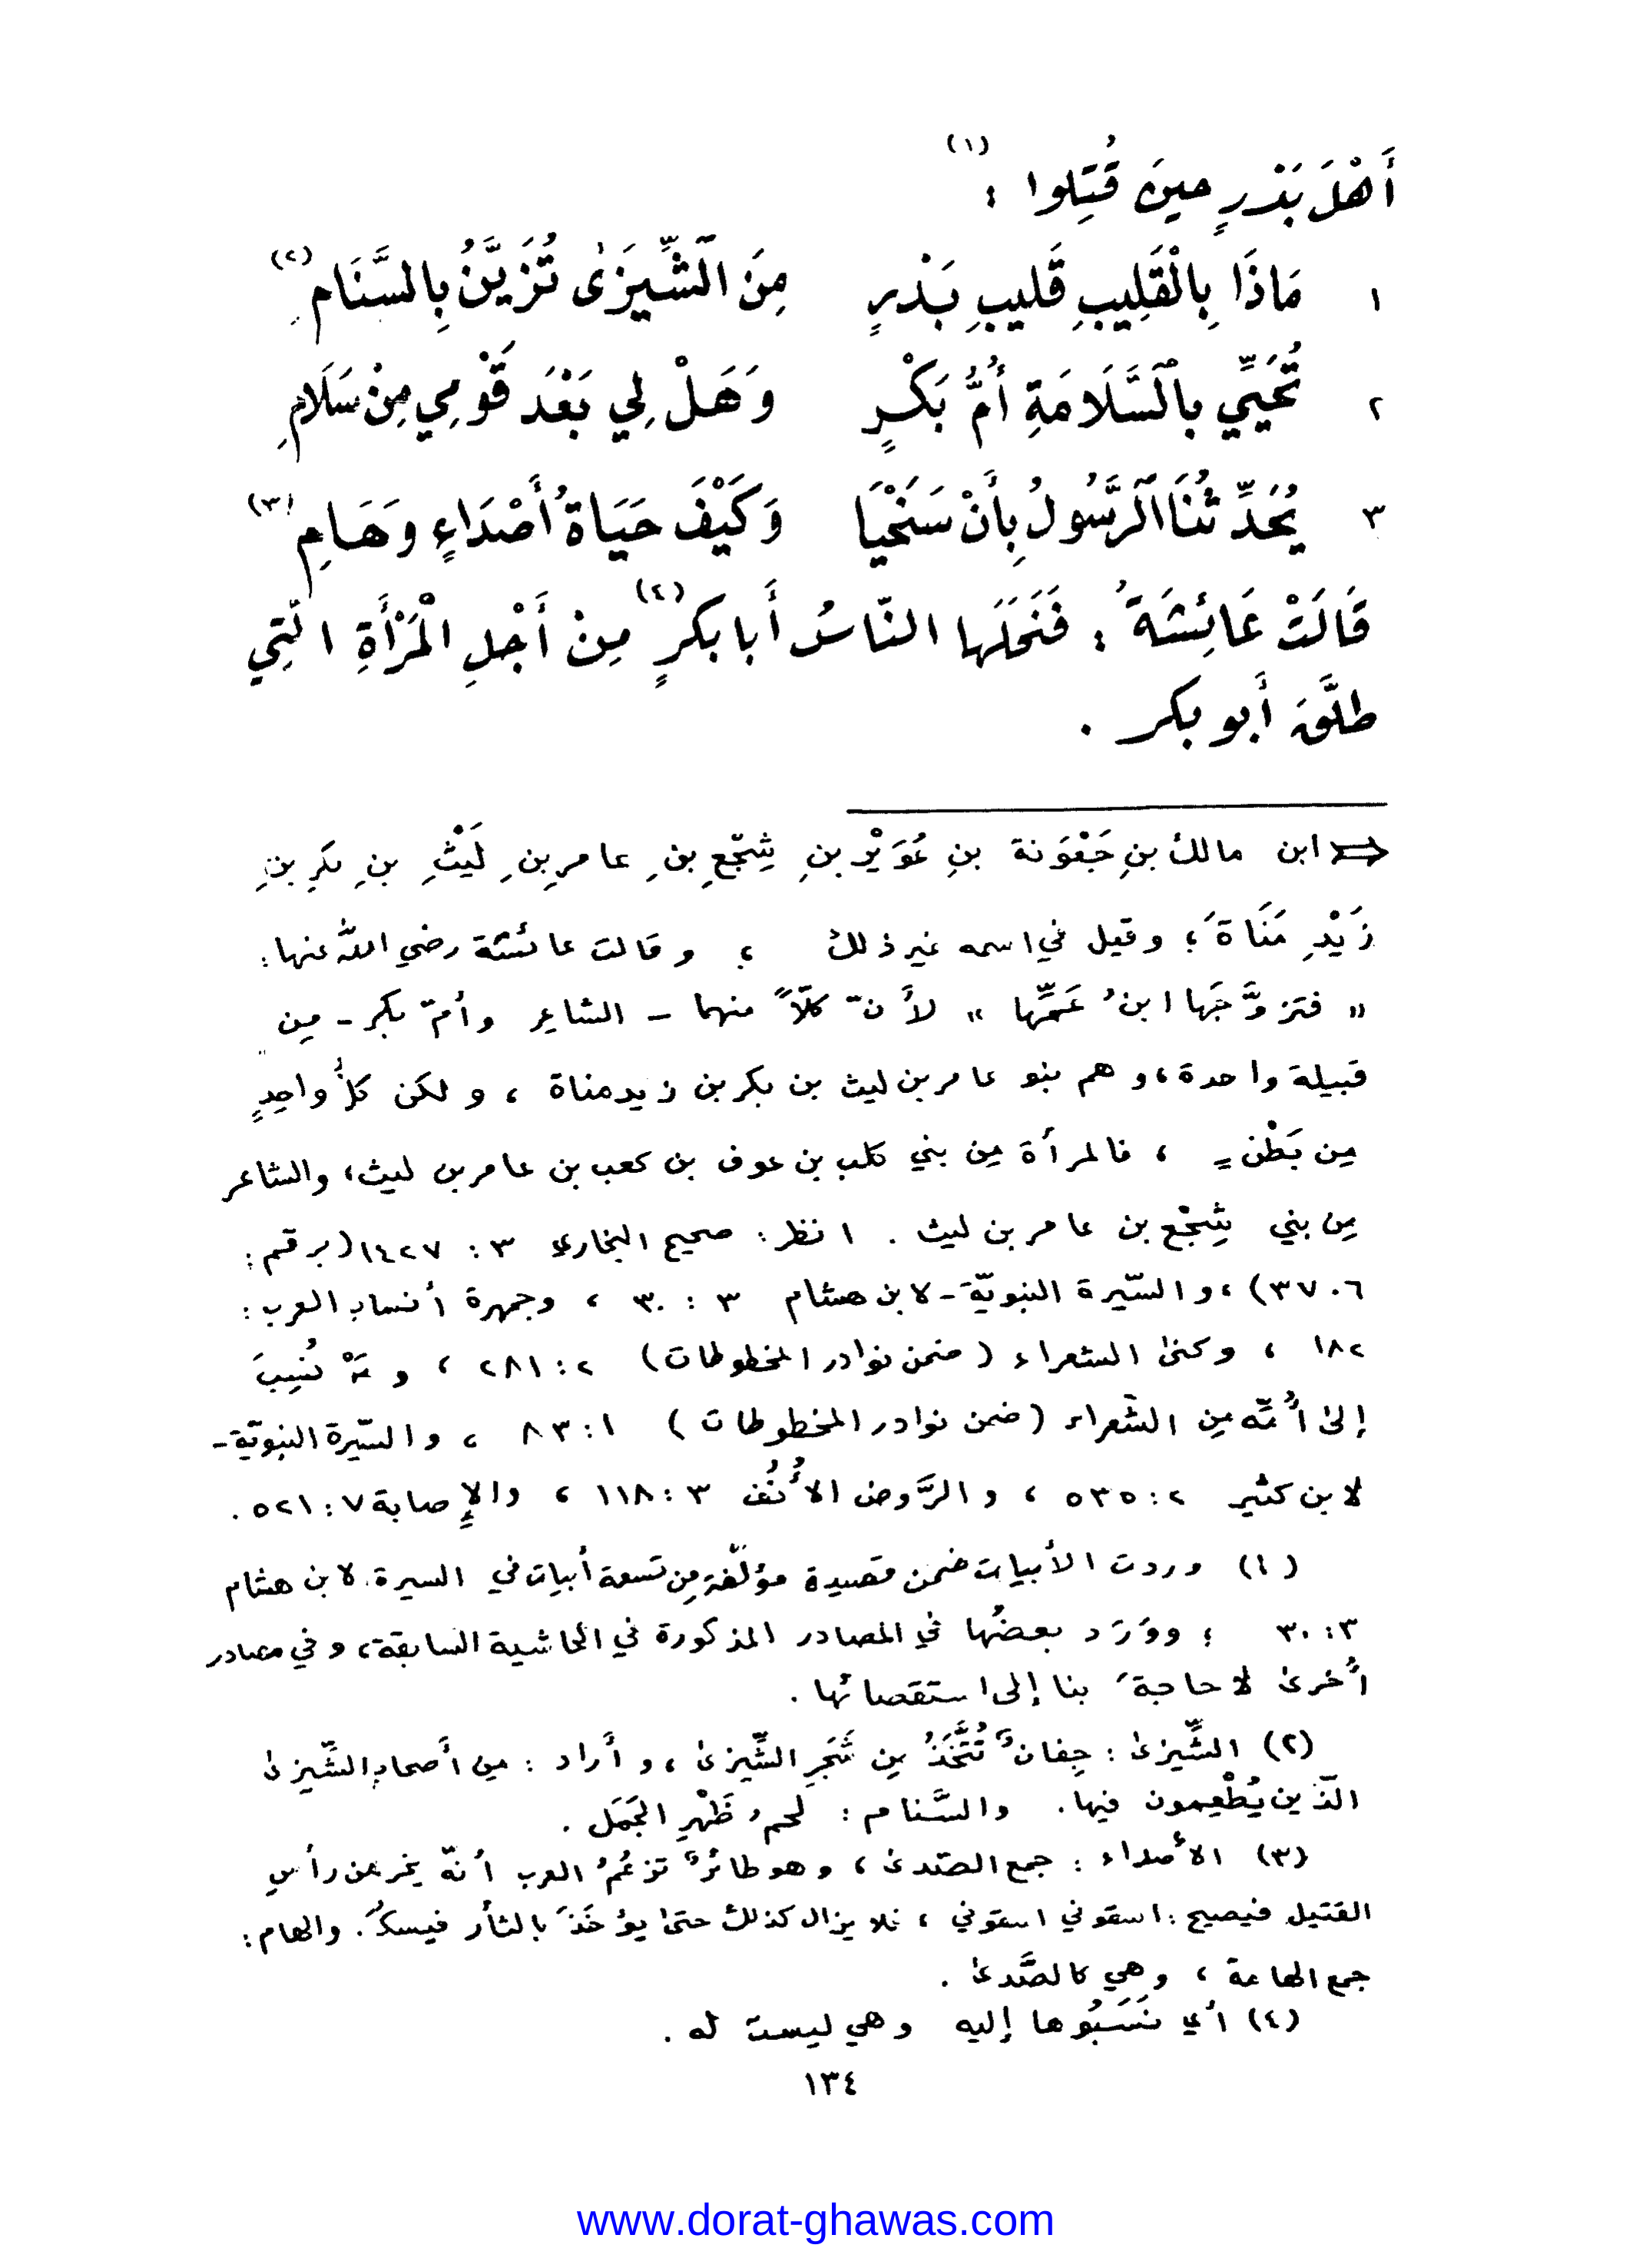 أَهْلَ بَدْرٍ حينَ قُتِلوا : (١)
١ مَاذَا بِالْقَلِيبِ قَليبِ بَدْرٍ مِنَ الشِّيزَىٰ تُزَيَّنُ بِالسَّنَامِ (٢)
٢ تُحَيِّي بِالسَّلَامَةِ أُمُّ بَكْرٍ وَهَلْ لِي بَعْدَ قَوْمِي مِنْ سَلَامِ
٣ يُحَدِّثُنَا الرَّسُولُ بِأَنْ سَنَحْيَا وَكَيْفَ حَيَاةُ أَصْدَاءٍ وَهَامِ (٣)
قَالَتْ عَائِشَةُ : فَنَحَلَها النّاسُ أَبا بكرٍ (٤) مِنْ أَجْلِ الْمَرْأَةِ الّتِي
طلَّقَ أَبو بكر .
ابن مالك بنِ جَعْوَنة بنِ عُوَيْرِ بنِ شِجْعِ بنِ عامرِ بنِ لَيْثِ بنِ بكرِ بنِ
زَيْدِ مَنَاةَ ؛ وقيل في اسمه غير ذلك ؛ وقالت عائشة رضي الله عنها :
« فتزوَّجَها ابنُ عَمِّها » لأنّ كلّاً منهما – الشاعر وأمّ بكر - من
قبيلة واحدة ، وهم بنو عامر بن ليث بن بكر بن زيد مناة ، ولكن كلُّ واحِدٍ
مِن بَطْنٍ ، فالمرأة مِن بني كلب بن عوف بن كعب بن عامر بن ليث ، والشاعر
مِن بني شِجْع بن عامر بن ليث . انظر : صحيح البخاري ٣ : ١٤٢٧ (برقم :
٣٧٠٦) ، والسّيرة النبويّة - لابن هشام ٣ : ٣٠ ، وجمهرة أنساب العرب :
١٨٢ ، وكنىٰ الشعراء ( ضمن نوادر المخطوطات ) ٢ : ٢٨١ ، و مَنْ نُسِبَ
إلىٰ أُمّه مِن الشّعراء ( ضمن نوادر المخطوطات ) ١ : ٨٣ ، والسّيرة النبويّة -
لابن كثير ٢ : ٥٣٥ ، والرَّوض الأُنُف ٣ : ١١٨ ، والإصابة ٧ : ٥٢١ .
(١) وردت الأبيات ضمن قصيدة مؤلّفة مِن تسعة أبيات في السيرة لابن هشام
٣ : ٣٠ ؛ ووَرَد بعضُها في المصادر المذكورة في الحاشية السابقة ، وفي مصادر
أُخرىٰ لا حاجةَ بنا إلى استقصائها .
(٢) الشِّيزىٰ : جِفانٌ تُتَّخَذُ مِن شَجَرِ الشِّيزىٰ ، وأَراد : مِن أَصحابِ الشِّيزىٰ
الّذين يُطْعِمون فيها . والسَّنام : لحمُ ظَهْرِ الجَمَل .
(٣) الأَصداء : جمع الصّدىٰ ، وهو طائرٌ تزعُمُ العرب أنّه يخرج من رأسِ
القتيل فيصيح : اسقوني اسقوني ، فلا يزال كذلك حتىٰ يؤخَذَ بالثأر فيسكت . والهام :
جمع الهامة ، وهي كالصَّدىٰ .
(٤) أي نَسَبُوها إليه وهي ليست له .
١٣٤
www.dorat-ghawas.com